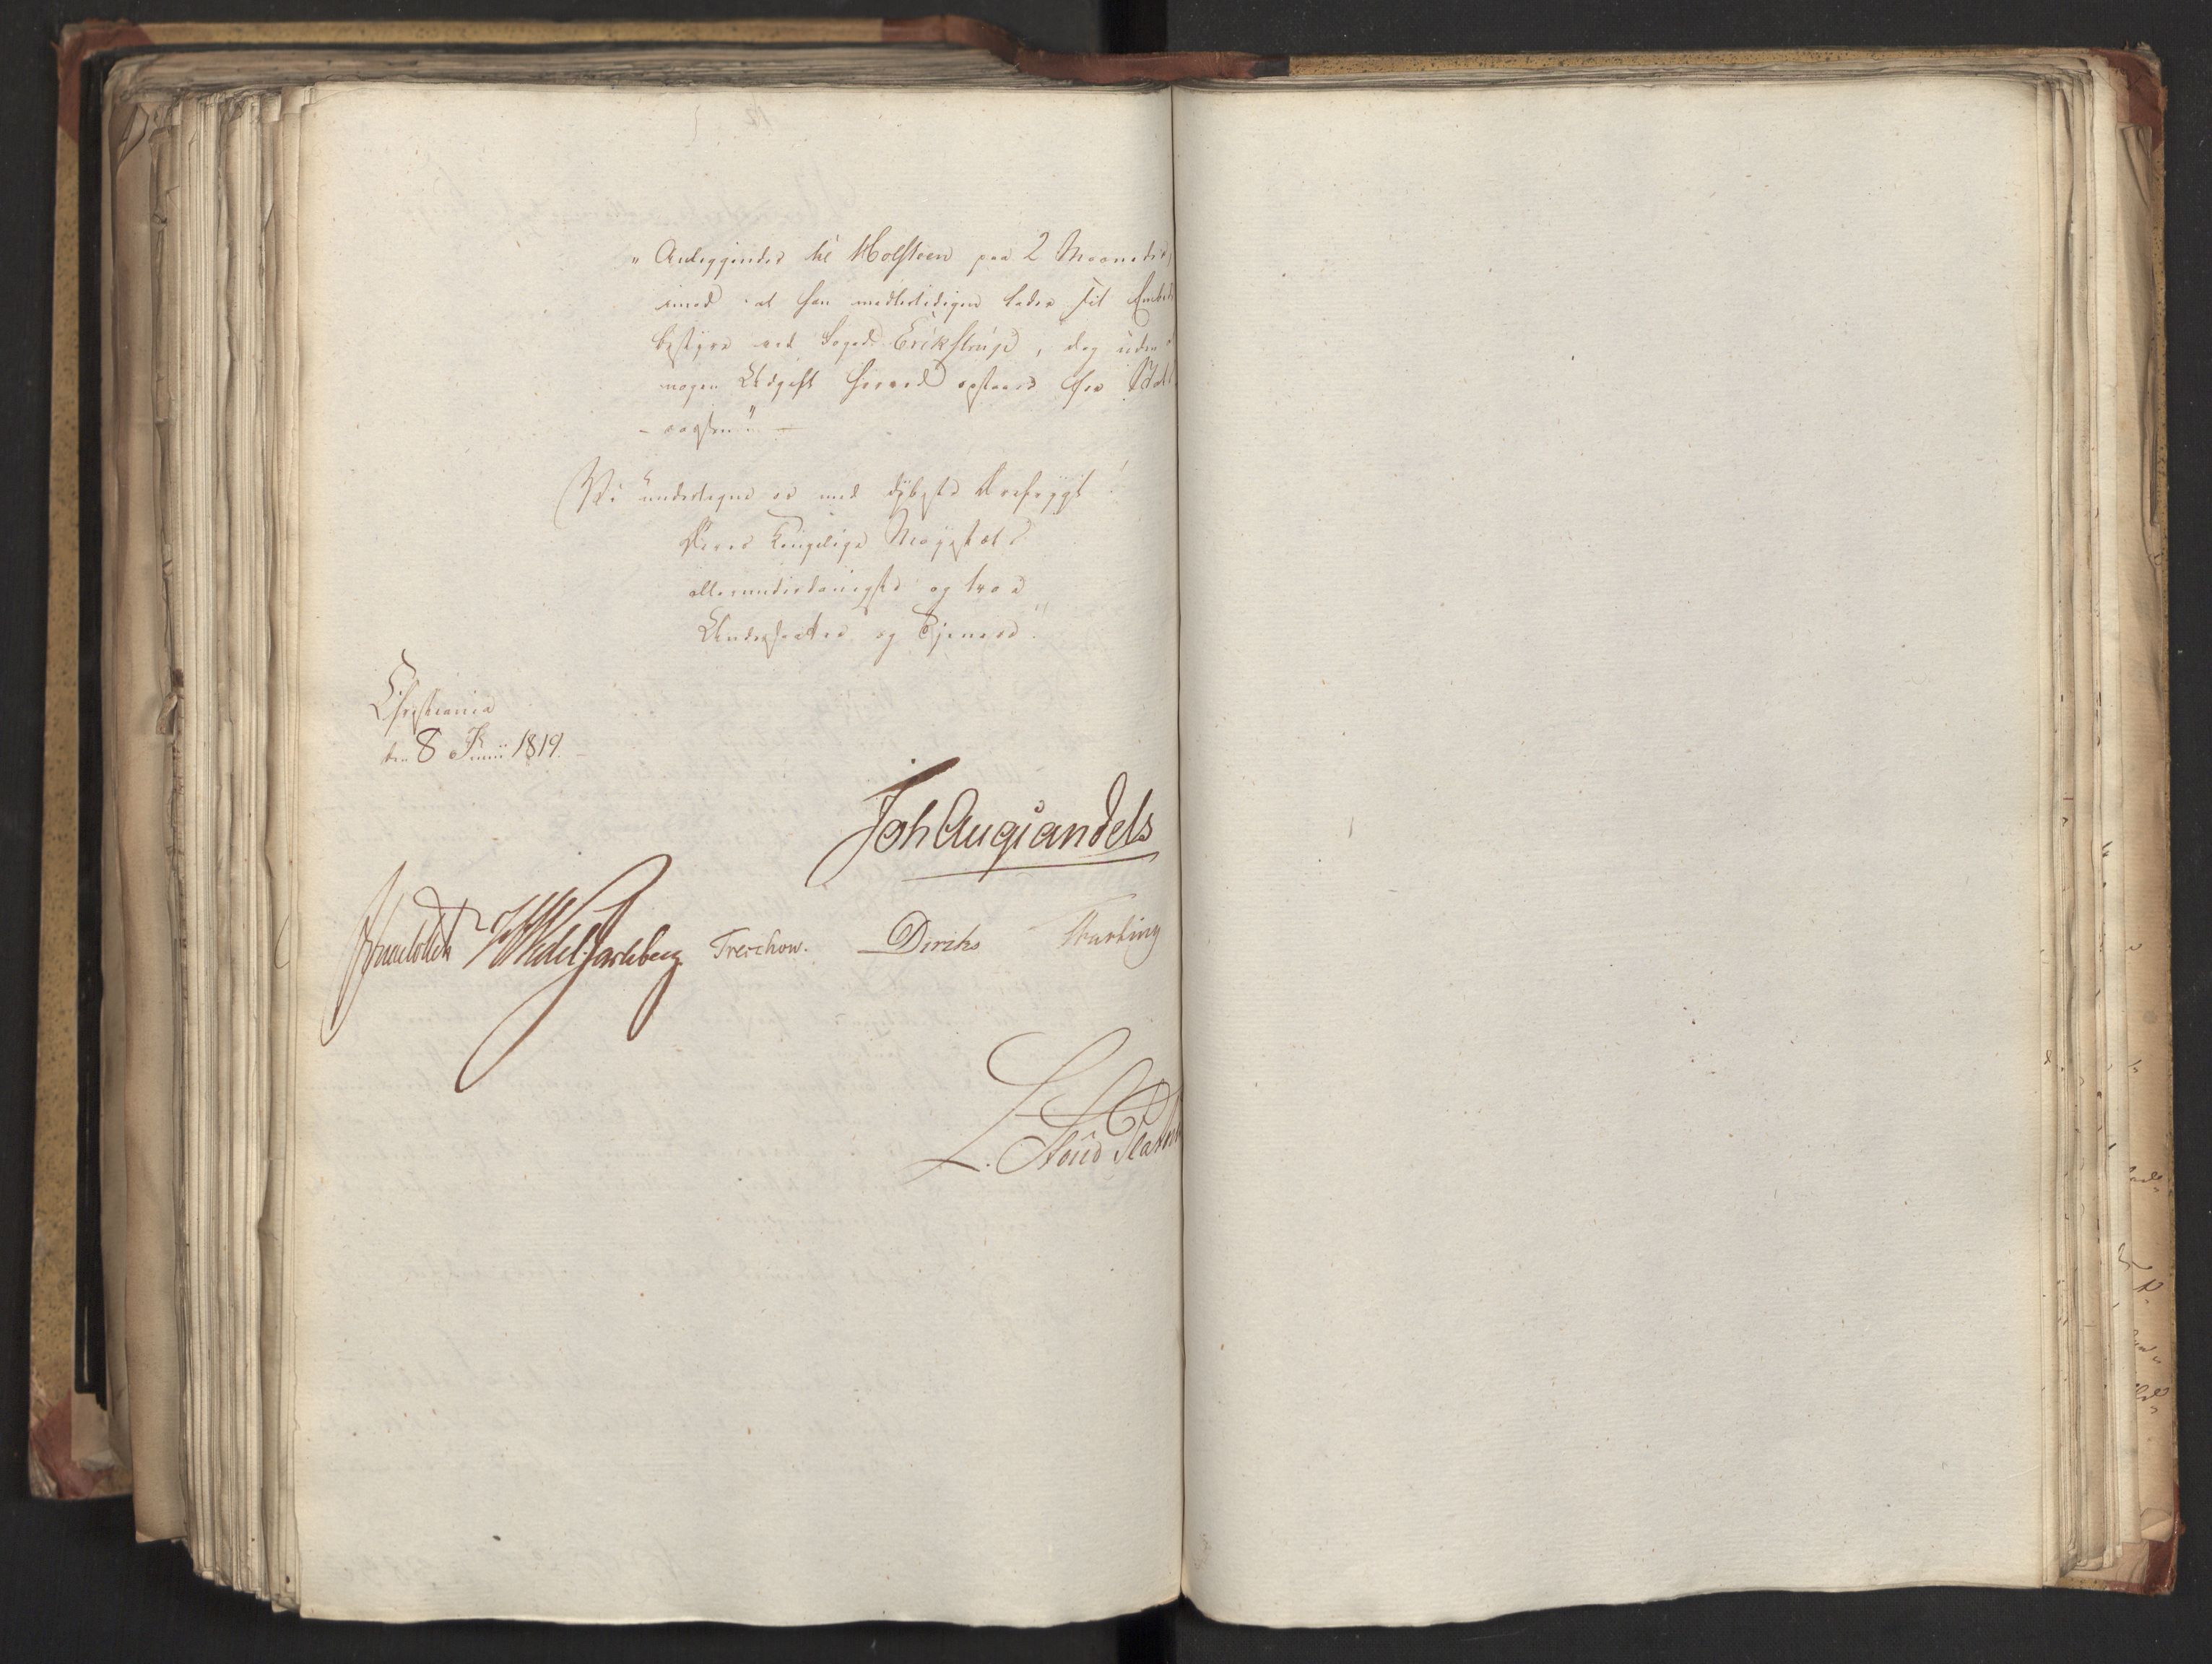 " Anliggender til Holsteen paa 2 Maaneder,
imod at han imedlertidigen lader sit Embede
bestyre ved Foged Erikstrup, dog uden
nogen Udgift herved opstaaer for Stats-
-cassen." -
Vi undertegne os med dybeste Ærefrygt!
Deres Kongelige Majestæts
allerunderdanigste og troe
Undersaatter og Tjenere!
Christiania
den 8 Junii 1819.
Joh Aug Sandels
WedelJarlsberg Treschow. Diriks
L. Stoud Platou